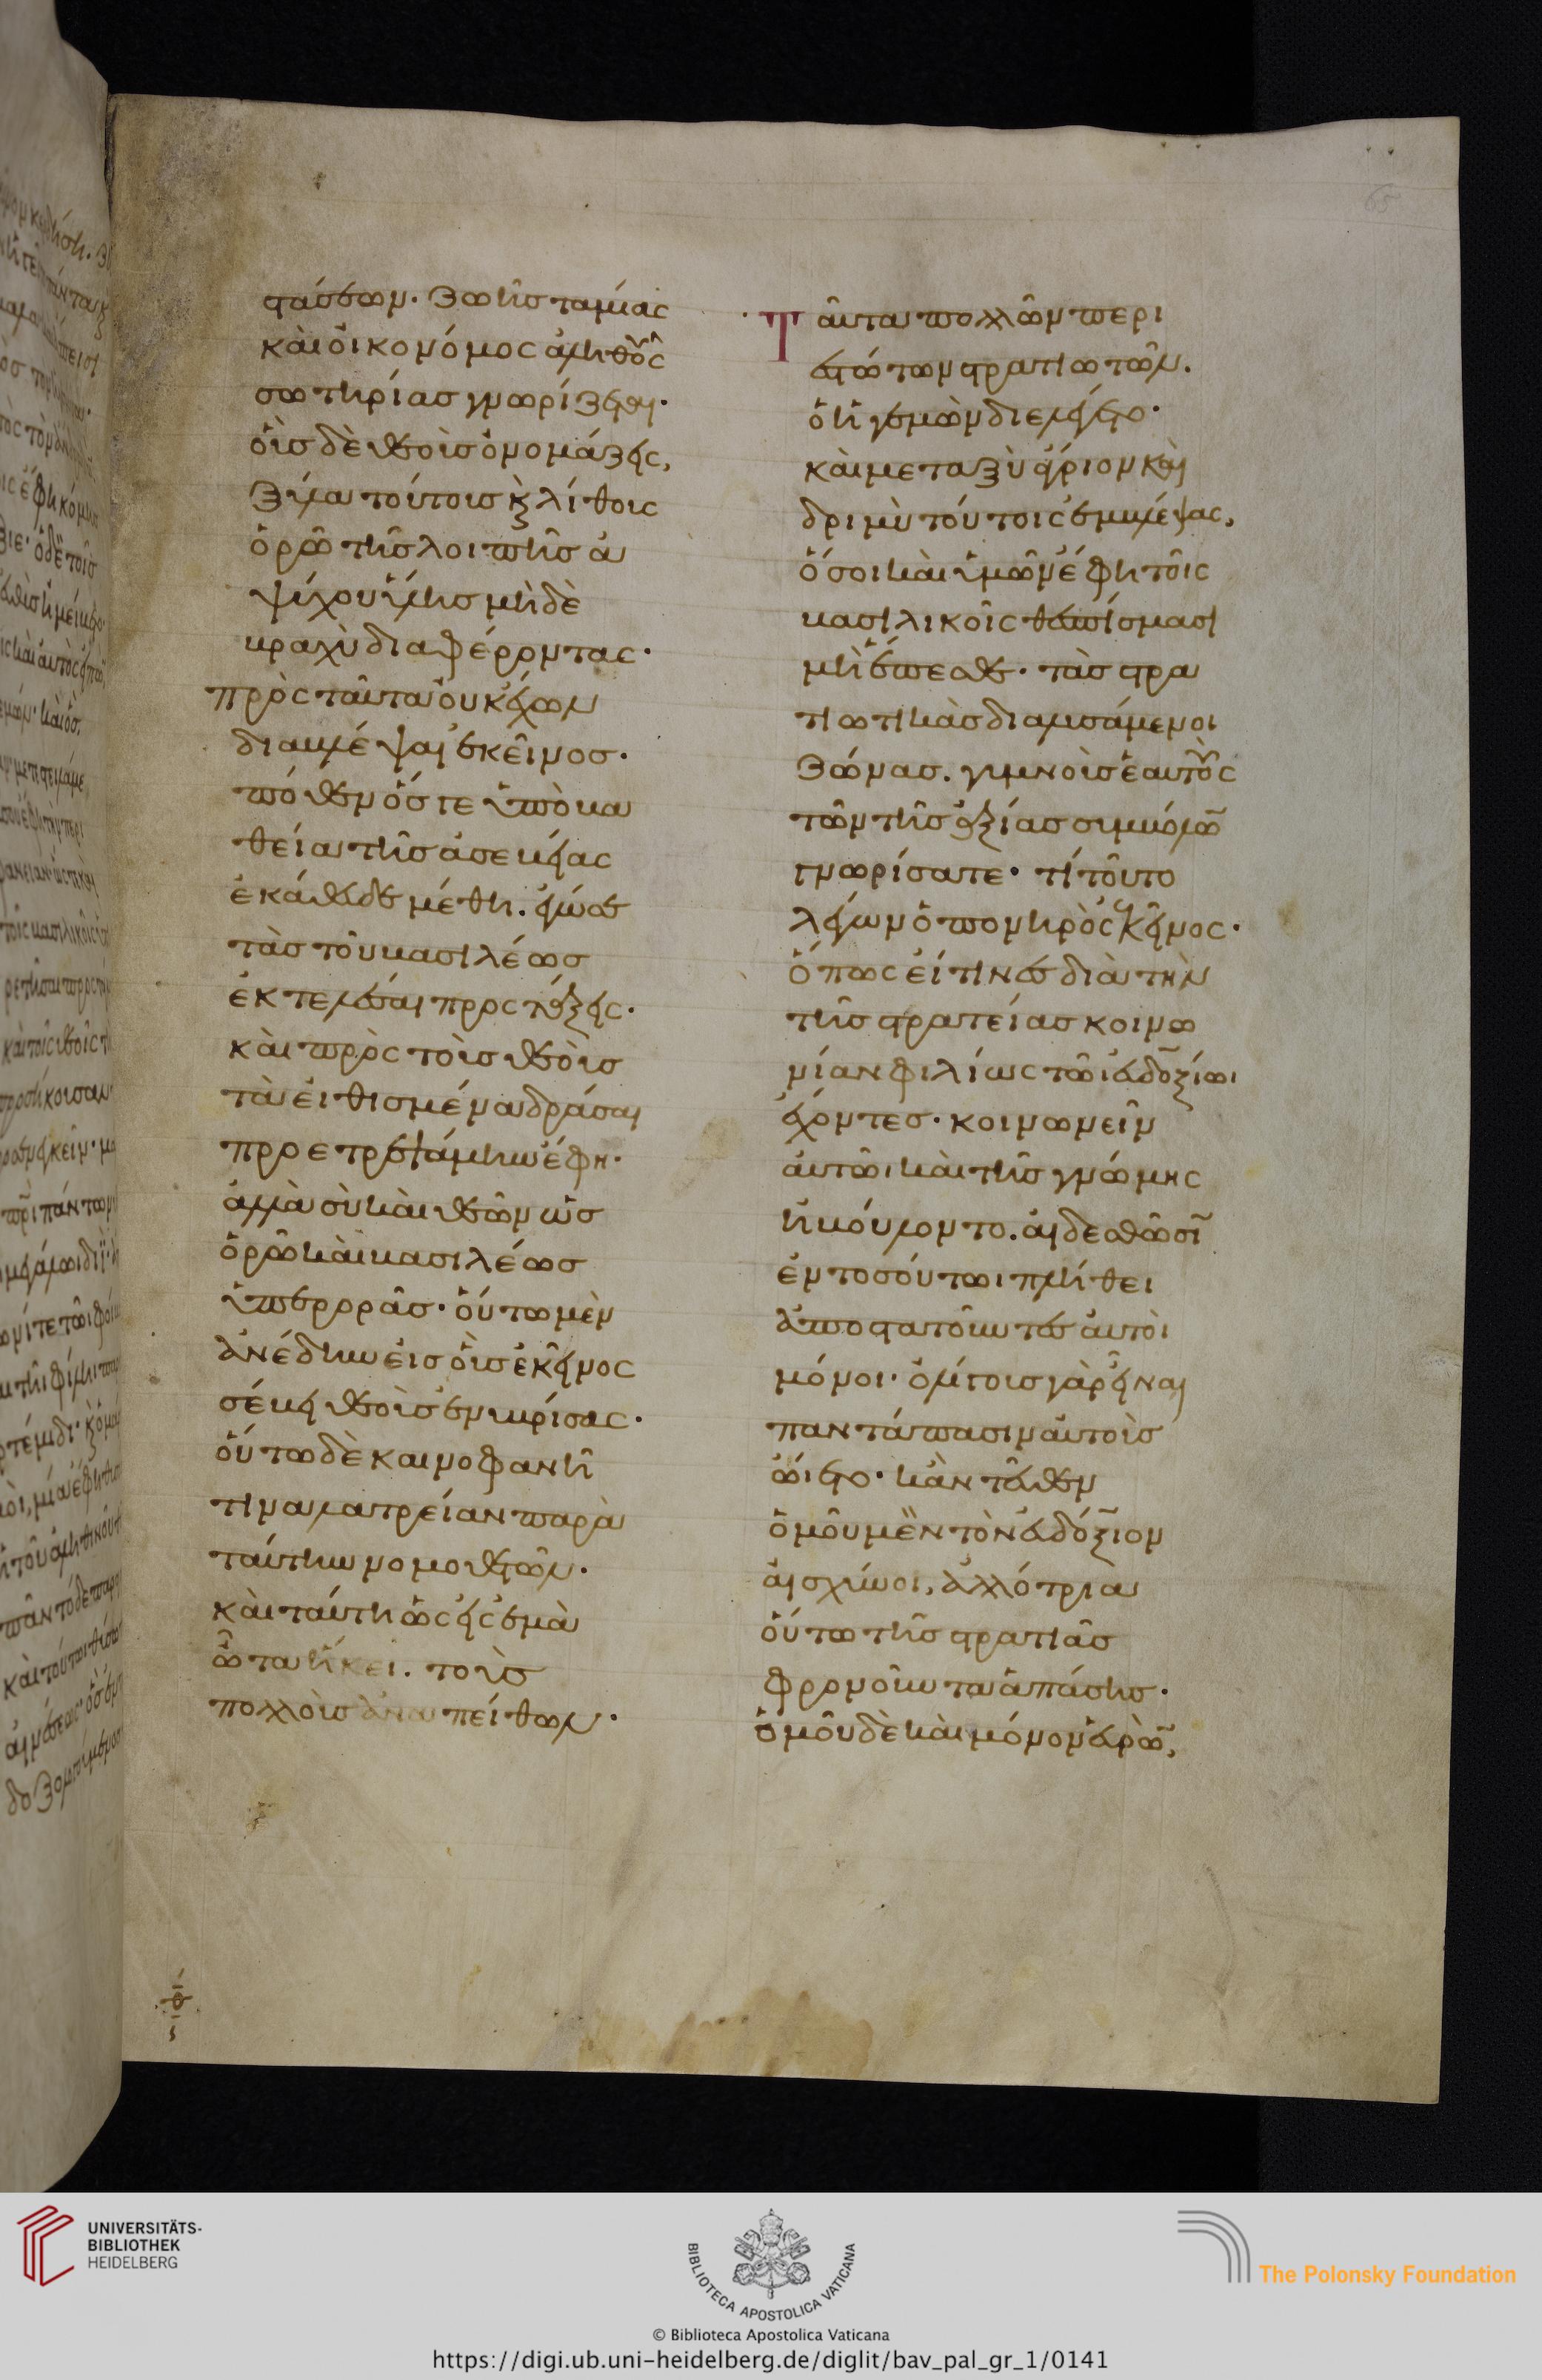 τάσσων. ζωῆς ταμίας
καὶ οἰκονόμος ἀληθοῦς
σωτηρίας γνωρίζεται·
οἷς δὲ θεοῖς ὀνομάζεις,
ξύλα τούτοις καὶ λίθοις
ὁρῶ τῆς λοιπῆς ἀ
ψύχου ὕλης μὴδὲ
βραχὺ διαφέροντας·
πρὸς ταῦτα οὐκ ἔχων
διαβλέψαι ἐκεῖνος·
πόθεν ὅς γε ὑπὸ βα
θεία τῆς ἀσεβείας
ἐκάθευδε μέθη.
τὰς τοῦ βασιλέως
ἐκτελέσαι προστάξεις·
καὶ πρὸς τοῖς θεοῖς
τὰ εἰθισμένα δράσαι
προετρεψάμην ἔφη·
ἀλλὰ σὺ καὶ θεῶν ὡς
ὁρῶ καὶ βασιλέως
ὑπερορᾶς· οὕτω μὲν
ἀνέδην εἰς οἷς ἐκεῖνος
σέβει θεοῖς ἐνυβρίσας·
οὕτω δὲ καινοφανῆ
τινα λατρείαν παρὰ
ταύτην νομοθετῶν·
καὶ ταύτη ὡς εἰς ἐμὰ
ὦτα ἥκει. τοὺς
πολλοὺς ἀναπείθων·
Ταῦτα πολλῶν περι
εστώτων στρατιωτῶν.
ὅτι γεμὼν διελέγετο·
καὶ μεταξὺ ἄγριον καὶ
δριμὺ τούτοις ἐμβλέψας,
ὅσοι καὶ ὑμῶν ἔφη τοῖς
βασιλικοῖς θεσπίσμασι
μὴ ἕπεσθε· τὰς στρα
τιωτικὰς διαλυσάμενοι
ζώνας. γυμνοὺς ἑαυτοὺς
τῶν τῆς ἀξίας συμβόλων
γνωρίσατε· τί τοῦτο
λέγων ὁ πονηρὸς ἐκεῖνος·
ὅπως εἴ τινες διὰ τὴν
τῆς στρατείας κοινω
νίαν φιλίως τῶι εὐδοξίωι
ἔχοντες· κοινωνεῖν
αὐτῶι καὶ τῆς γνώμης
ἠβούλοντο. αἰδεσθῶσιν
ἐν τοσούτωι πλήθει
ἀποστατοῦντες αὐτοὶ
μόνοι· ὀλίγοις γὰρ εἶναι
παντάπασιν αὐτοὺς
ὤιετο· κἀντεῦθεν
ὁμοῦ μὲν τὸν εὐδόξιον
αἰσχύνοι, ἀλλότρια
οὕτω τῆς στρατιᾶς
φρονοῦντα ἁπάσης·
ὁμοῦ δὲ καὶ μόνον εὑρὼν,
65
UNIVERSITÄTS-
BIBLIOTHEK
HEIDELBERG
BIBLIOTECA APOSTOLICA VATICANA
The Polonsky Foundation
© Biblioteca Apostolica Vaticana
https://digi.ub.uni-heidelberg.de/diglit/bav_pal_gr_1/0141